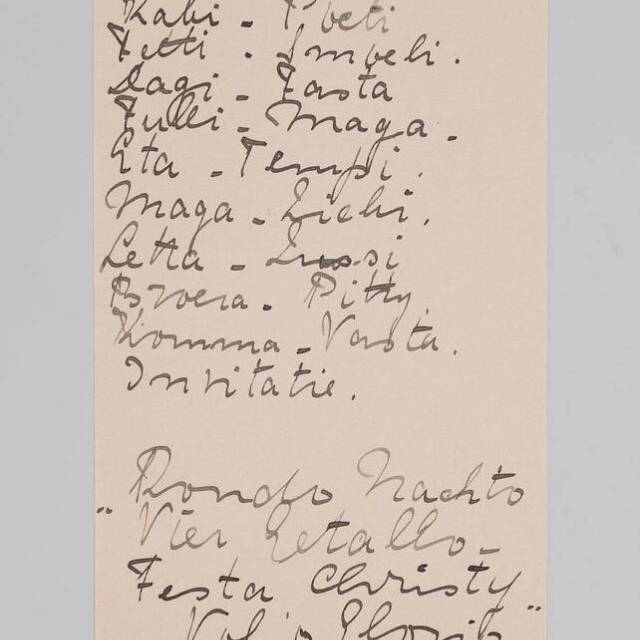 Kabi - Poeti
Tetti - Impeli.
Dagi - Fasta
Fulli - Maga -
Eta - Tempi.
Maga - Ziehi.
Letta - Zussi
Brvera - Pitty.
Komma - Vasta.
Invitatie.
Rondo Nachto
"Vier Getallo-
Festa Christy